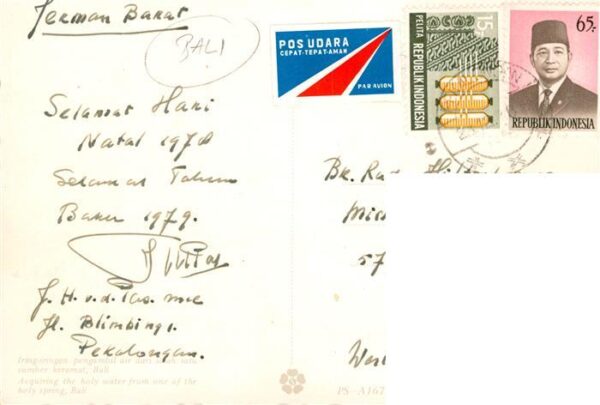 Jerman Barat
BALI
POS UDARA
CEPAT-TEPAT-AMAN
PAR AVION
15.-
PELITA
REPUBLIK INDONESIA
65.-
REPUBLIK INDONESIA
Selamat Hari
Natal 1978
Selamat Tahun
Baru 1979.
J. H. v. d.
Jl. Blimbing 1.
Pekalongan.
Iring-iringan pengambil air dari salah satu
sumber keramat, Bali
Acquiring the holy water from one of the
holy spring, Bali
57
PS-A167